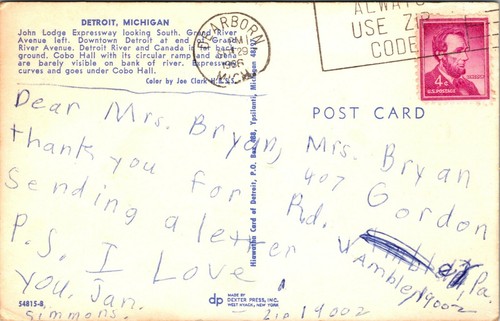 DETROIT, MICHIGAN
John Lodge Expressway looking South. Grand River
Avenue left. Downtown Detroit at end of Grand
River Avenue. Detroit River and Canada in far back-
ground. Cobo Hall with its circular ramp and arena
are barely visible on bank of river. Expressway
curves and goes under Cobo Hall.
Color by Joe Clark
DEARBORN
PM
29
1966
MICH
ALWAYS
USE ZIP
CODE
4¢
U.S. POSTAGE
POST CARD
Dear Mrs. Bryan,
thank you for
Sending a letter
P.S. I Love
You, Jan.
Simmons.
Mrs. Bryan
407 Gordon
Rd.
Pa.
Ambler, 19002
Zip 19002
Hiawatha Card of Detroit, P.O. Box 488, Ypsilanti, Michigan
54815-B
dp
MADE BY
DEXTER PRESS, INC.
WEST NYACK, NEW YORK